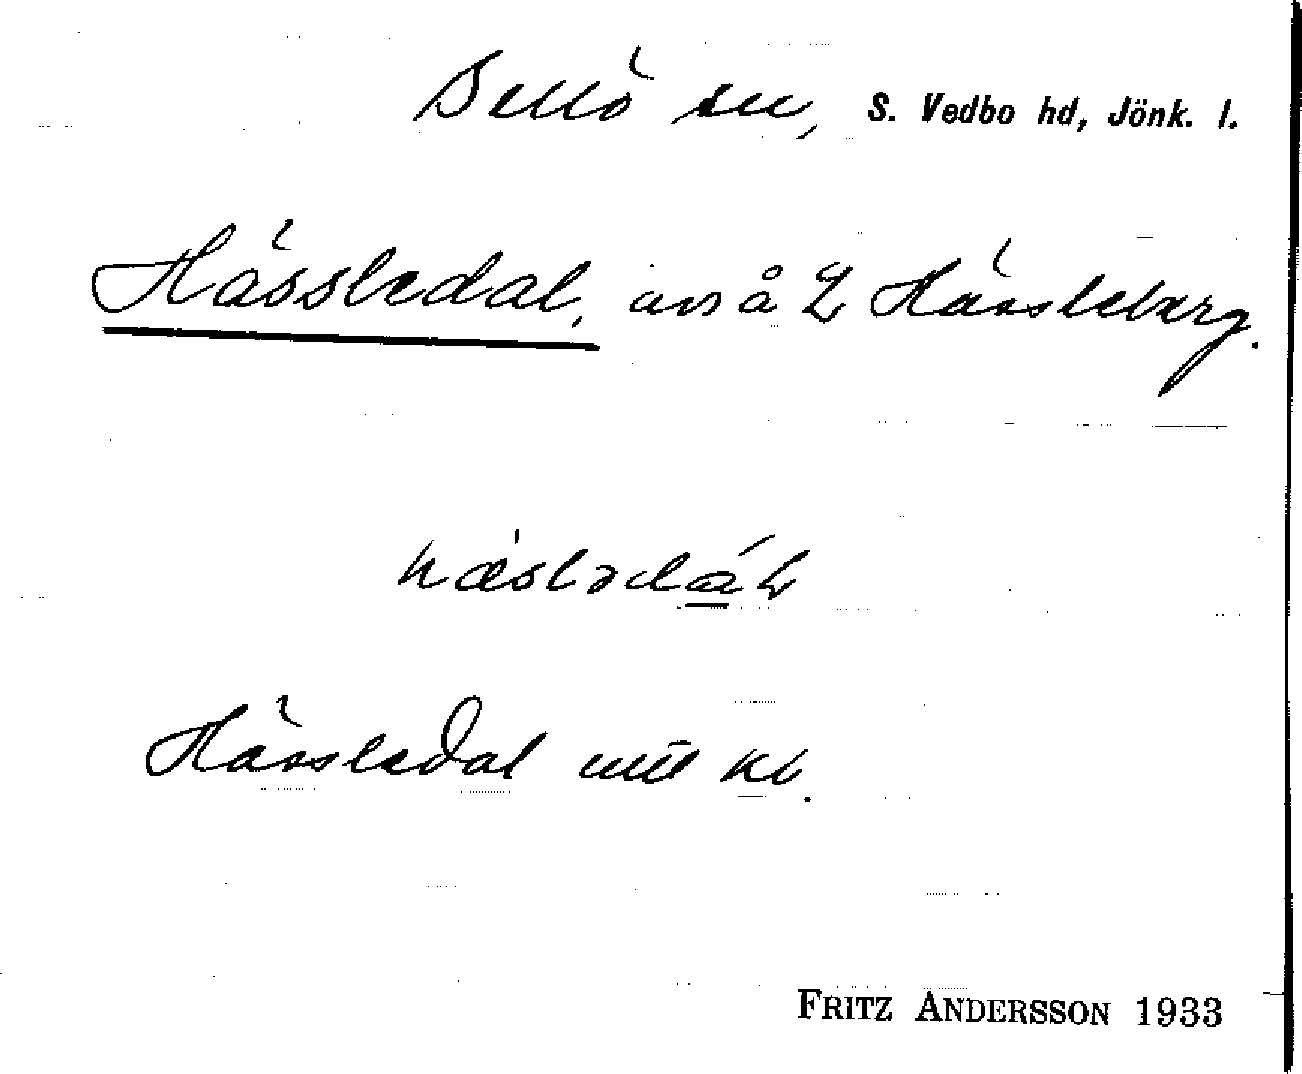 Bellö sn, S. Vedbo hd, Jönk. l.
Hässledal, avs å 2 Hässleberg.
Hässledal enl kb.
FRITZ ANDERSSON 1933